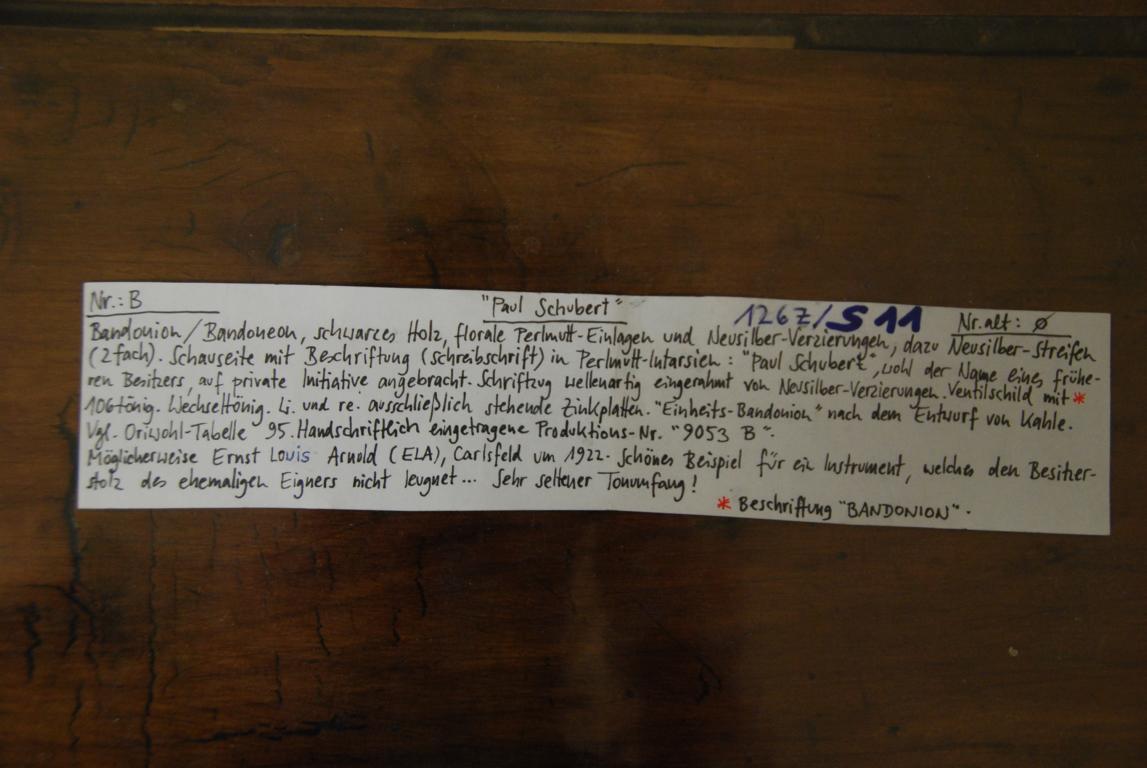 Nr.: B "Paul Schubert" 126Z/S 11 Nr. alt: ø
Bandonion/Bandoneon, schwarzes Holz, florale Perlmutt-Einlagen und Neusilber-Verzierungen, dazu Neusilber-Streifen
(2fach). Schauseite mit Beschriftung (Schreibschrift) in Perlmutt-Intarsien: "Paul Schubert", wohl der Name eines frühe-
ren Besitzers, auf private Initiative angebracht. Schriftzug wellenartig eingerahmt von Neusilber-Verzierungen. Ventilschild mit *
106tönig. Wechseltönig. Li. und re. ausschließlich stehende Zinkplatten. "Einheits-Bandonion" nach dem Entwurf von Kahle.
Vgl. Oriwohl-Tabelle 95. Handschriftlich eingetragene Produktions-Nr. "9053 B".
Möglicherweise Ernst Louis Arnold (ELA), Carlsfeld um 1922. Schönes Beispiel für ein Instrument, welches den Besitzer-
stolz des ehemaligen Eigners nicht leugnet... Sehr seltener Tonumfang!
* Beschriftung "BANDONION".